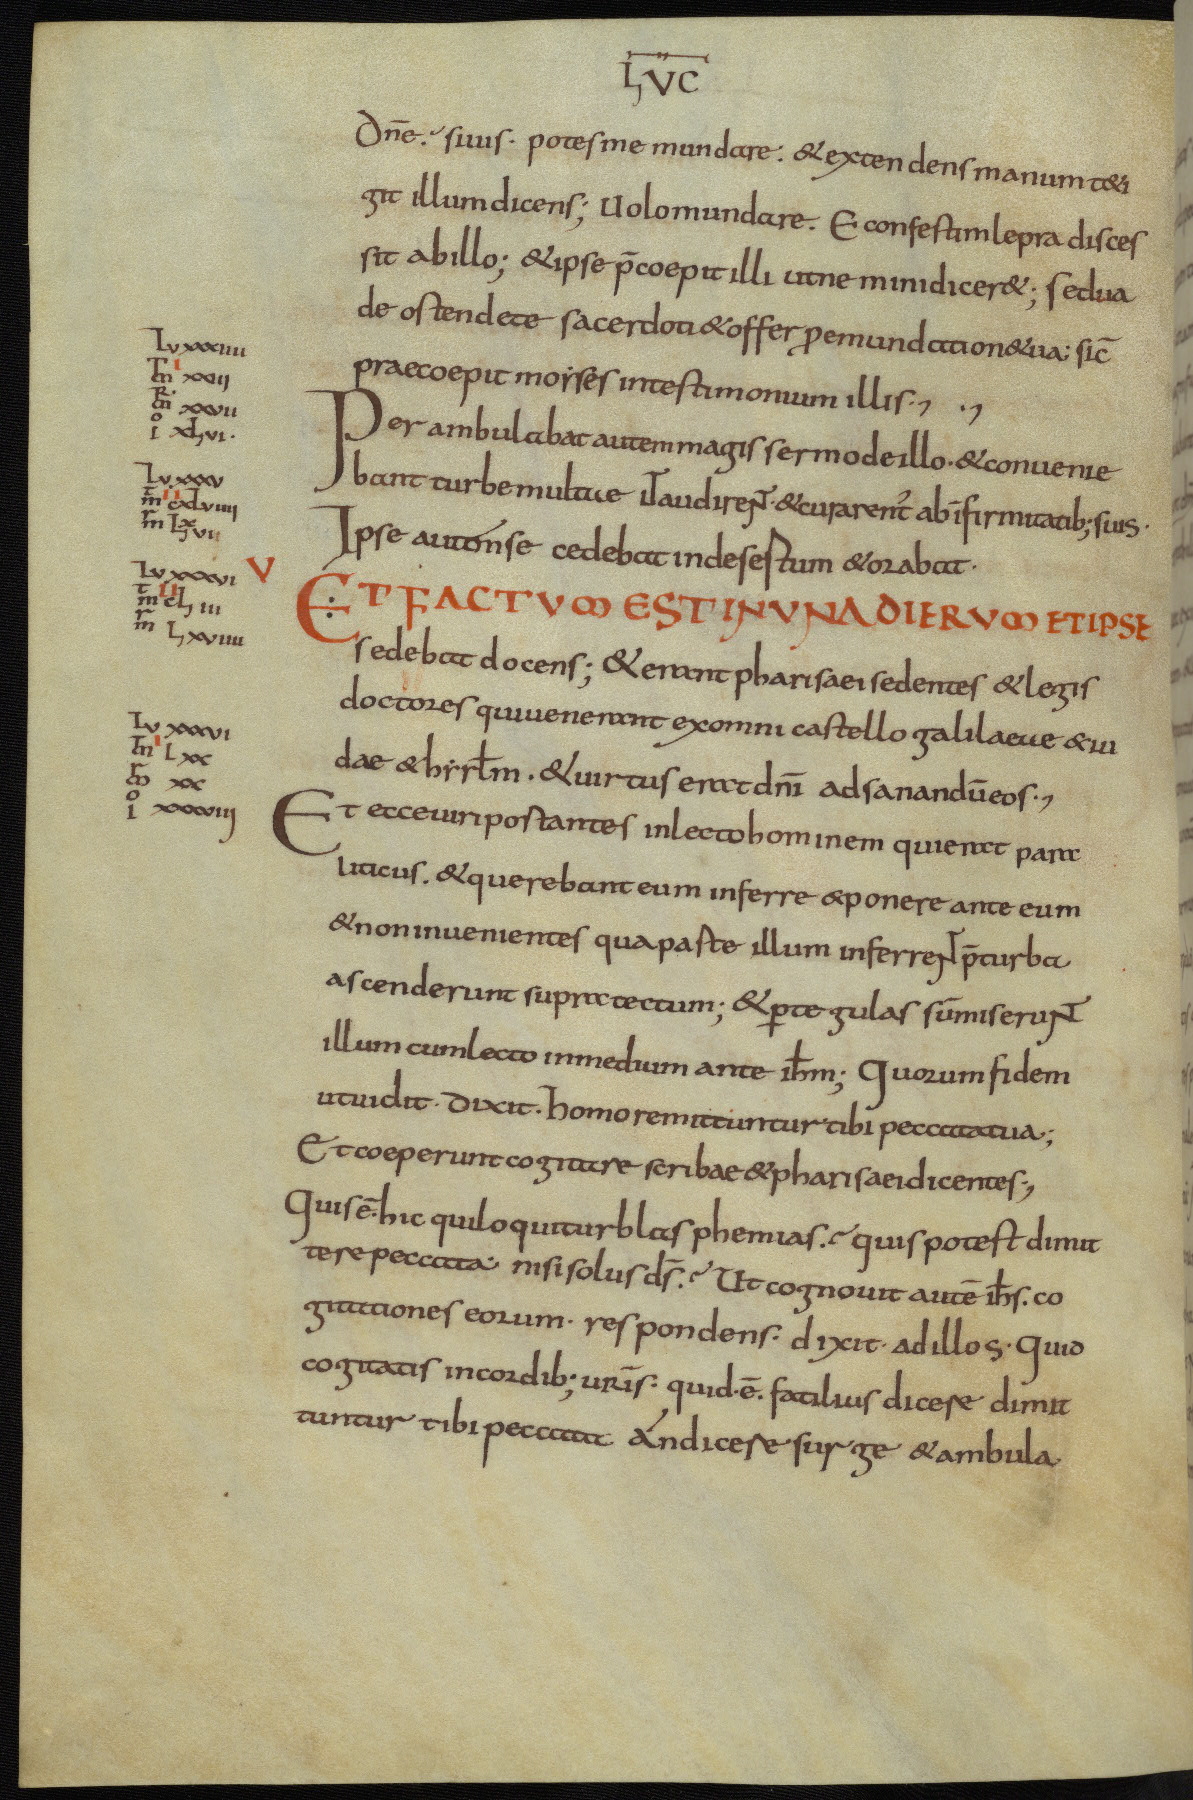 LUC
Dn̄e. si uis. potes me mundare. & extendens manum teti
git illum dicens; Uolo mundare. E confestim lepra disces
sit ab illo; & ipse p̄coepit illi ut nemini dicer&; sed ua
de ostende te sacerdoti & offer pro emundation& ua; sic̄
praecoepit moyses in testimonium illis.
Lu xxxiiii
m̄ i xxii
R m̄ xxvii
o i xlvi.
Per ambulabat autem magis sermo de illo. & conuenie
bant turbe multae ut audireNT. & curarent᷒ ab īfirmitatib; suis.
Lu. xxxv
m̄ ii cxlviiii
r m̄ lxvii
Ipse autem se cedebat in desertum & orabat.
Lu xxxvi
m̄ ii cliii
r m̄ lxviiii
V
ET FACTUM EST IN UNA DIERUM ET IPSE
sedebat docens; & erant pharisaei sedentes & legis
doctores qui uenerant ex omni castello galilaeae & iu
dae & hyrl̄m. & uirtus erat dn̄i ad sanandū eos.
Lu xxxvii
m̄ i lxx
r m̄ xx
o i xxxviii
Et ecce uiri postantes in lecto hominem qui erat para
liticus. & querebant eum inferre & ponere ante eum
& non inuenientes qua paste illum inferreNT p̄ turba
ascenderunt supra tectum; & ꝑ tegulas sūmiseruNT
illum cum lecto in medium ante ih̄m; Quorum fidem
ut uidit. dixit. homo remittuntur tibi peccata tua;
Et coeperunt cogitare scribae & pharisaei dicentes.
Quis ē. hic qui loquitur blasphemias. quis potest dimit
tere peccata. nisi solus ds̄. Ut cognouit autē ih̄s. co
gitationes eorum. respondens. dixit. ad illos. Quid
cogitatis in cordib; uris̄. quid. ē. fatilius dicere dimit
tuntur tibi peccata. An dicere surge & ambula